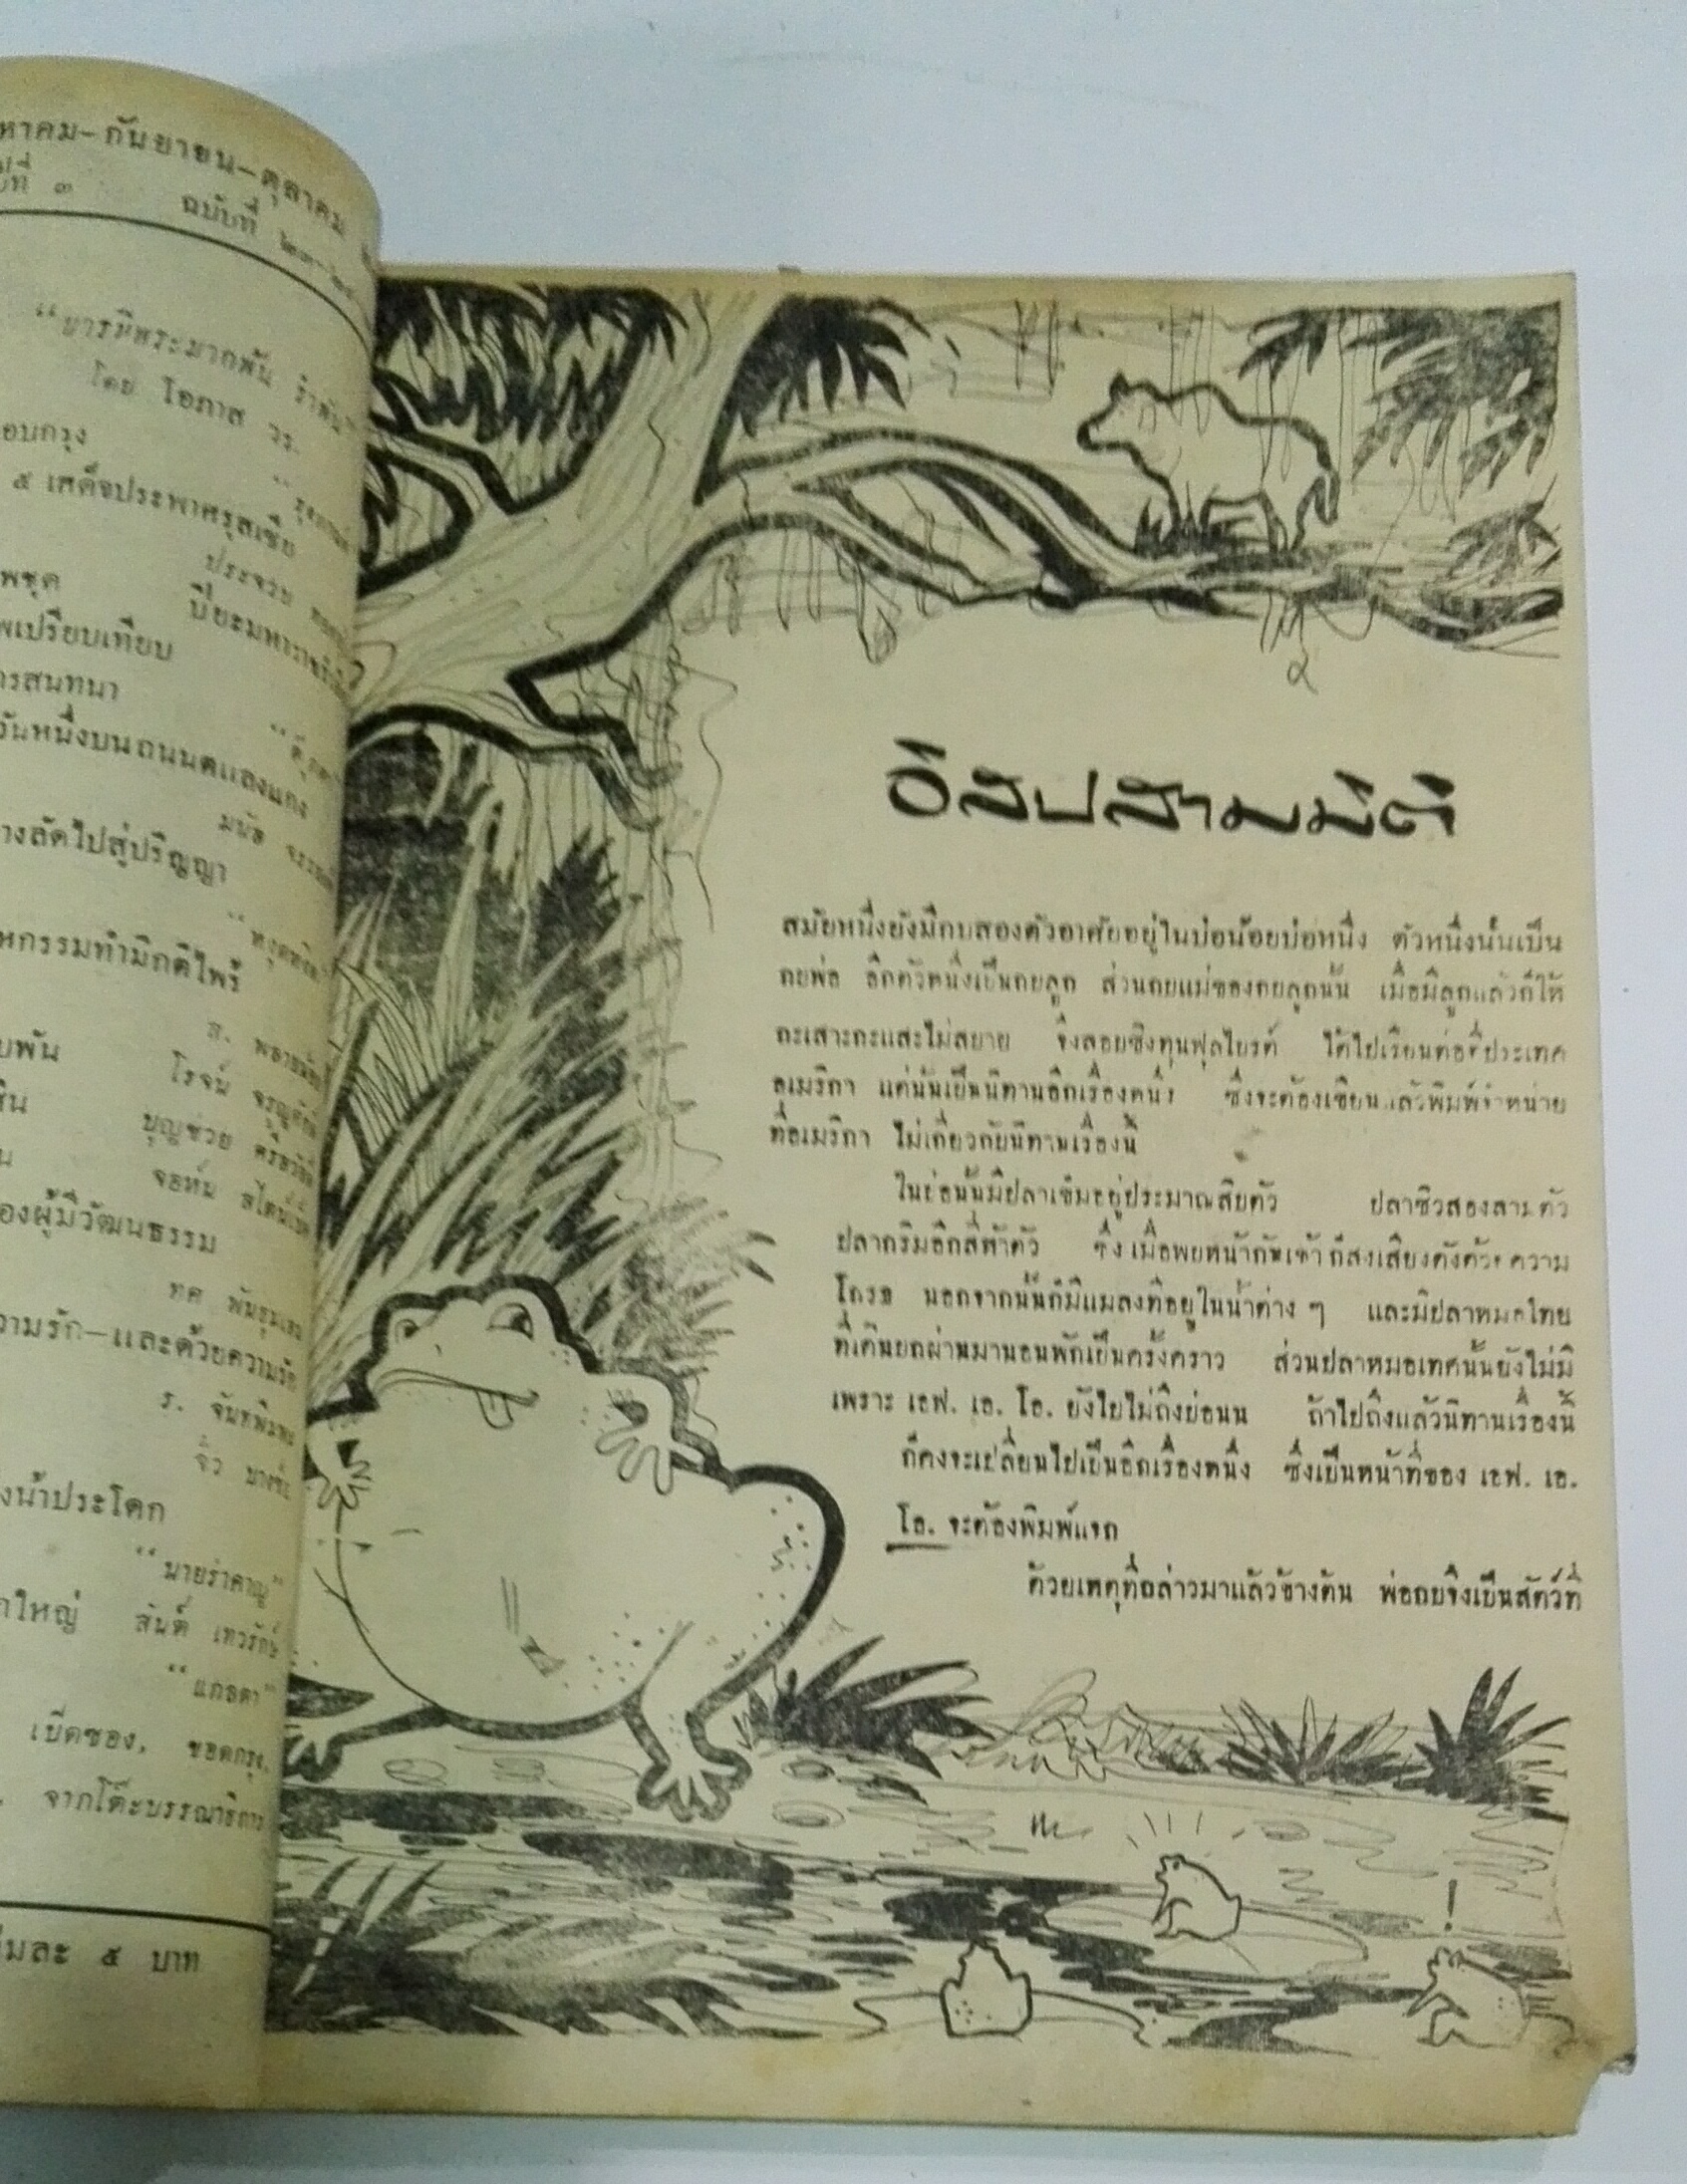 หาคม–กันยายน–ตุลาคม
ปีที่ ๓ ฉบับที่
โดย โอภาส วร.
อบกรุง
๕ เสด็จประพาศรุสเซีย
พชุด
พเปรียบเทียบ
ปิยะมหาราช
ารสนทนา
วันหนึ่งบนถนนตแลงแกง
มนัส
างลัดไปสู่ปริญญา
หกรรมทำมิกดีไพร่
ยพัน
โรจน์ จรูญ
บุญช่วย
จอห์น สไตน์เบ็ค
องผู้มีวัฒนธรรม
ทศ พันธุมเสน
วามรัก–และด้วยความรัก
ร. จันทพิมพะ
จิ๋ว บางซื่อ
งน้ำประโดก
“นายรำคาญ”
กใหญ่ สันต์ เทวรักษ์
“แกธดา”
เบ็ดซอง, ขอดกรุง,
จากโต๊ะบรรณาธิการ
ล่มละ ๕ บาท
อีสปสามมิติ
สมัยหนึ่งยังมีกบสองตัวอาศัยอยู่ในบ่อน้อยบ่อหนึ่ง ตัวหนึ่งนั้นเป็น
กบพ่อ อีกตัวหนึ่งเป็นกบลูก ส่วนกบแม่ของกบลูกนั้น เมื่อมีลูกแล้วก็ให้
กะเสาะกะแสะไม่สบาย จึงสอบชิงทุนฟุลไบรต์ ได้ไปเรียนต่อที่ประเทศ
อเมริกา แต่นั่นเป็นนิทานอีกเรื่องหนึ่ง ซึ่งจะต้องเขียนแล้วพิมพ์จำหน่าย
ที่อเมริกา ไม่เกี่ยวกับนิทานเรื่องนี้
ในบ่อนั้นมีปลาเข็มอยู่ประมาณสิบตัว ปลาซิวสองสามตัว
ปลากริมอีกสี่ห้าตัว ซึ่งเมื่อพบหน้ากันเข้าก็ส่งเสียงดังด้วยความ
โกรธ นอกจากนั้นก็มีแมลงที่อยู่ในน้ำต่าง ๆ และมีปลาหมอไทย
ที่เดินบกผ่านมานอนพักเป็นครั้งคราว ส่วนปลาหมอเทศนั้นยังไม่มี
เพราะ เอฟ. เอ. โอ. ยังไปไม่ถึงบ่อนน ถ้าไปถึงแล้วนิทานเรื่องนี้
ก็คงจะเปลี่ยนไปเป็นอีกเรื่องหนึ่ง ซึ่งเป็นหน้าที่ของ เอฟ. เอ.
โอ. จะต้องพิมพ์แจก
ด้วยเหตุที่กล่าวมาแล้วข้างต้น พ่อกบจึงเป็นสัตว์ที่